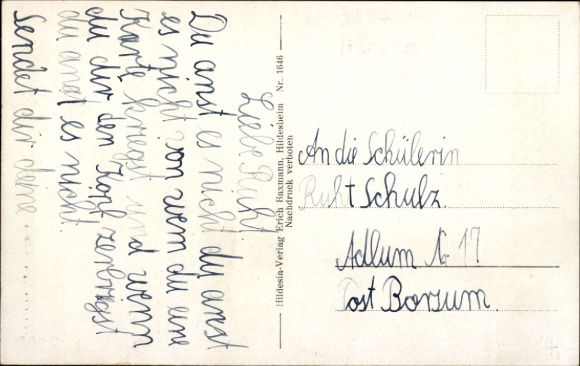 Liebe Ruht.
Du anst es nicht du anst
es nicht von wem du eine
Karte kriegst und wenn
du dir den Kopf zerbrigst
du anst es nicht.
Sendet dir deine . . . . . . .
Hildesia-Verlag Erich Baxmann, Hildesheim Nr. 1646
Nachdruck verboten
An die Schülerin
Ruht Schulz.
Adlum Nr 17
Post Borsum.